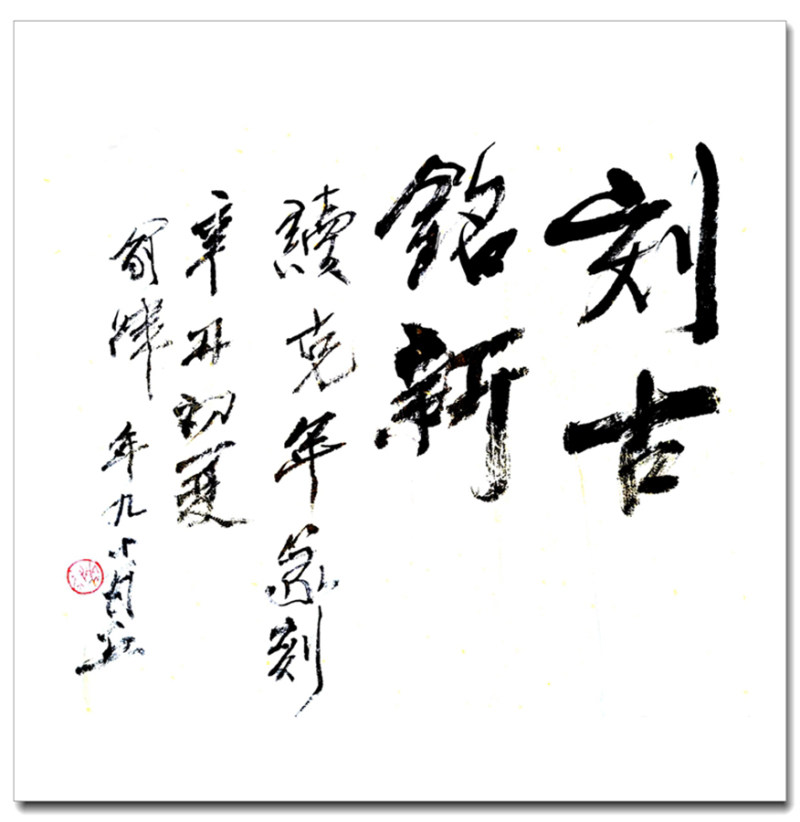 刻古
銘新
續克年篆刻
辛丑初夏
年九十有五